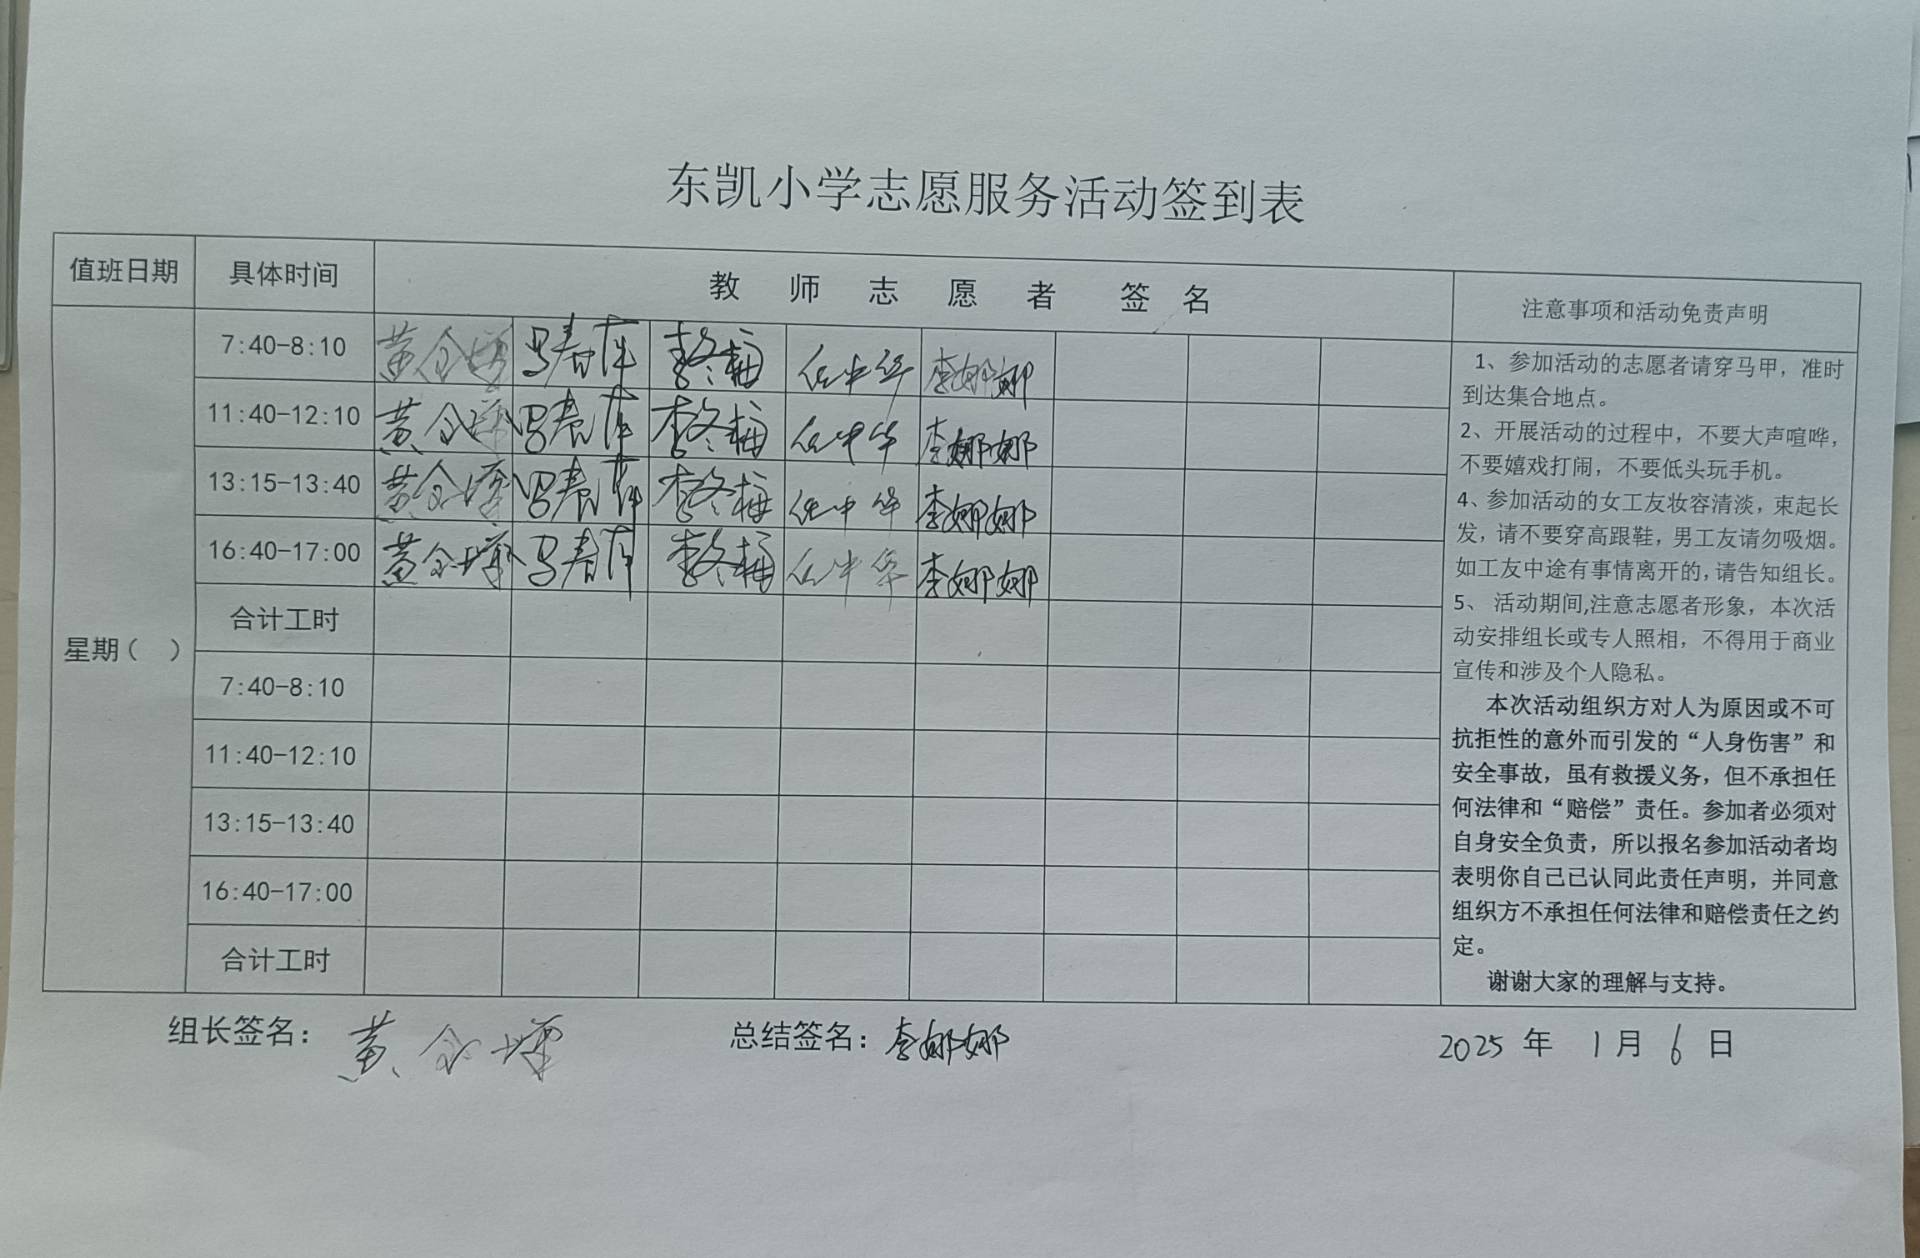 东凯小学志愿服务活动签到表
值班日期 具体时间 教师志愿者 签名 注意事项和活动免责声明
星期( )
7:40-8:10 黄 李冬梅 任中华 李娜娜
11:40-12:10 黄 李冬梅 任中华 李娜娜
13:15-13:40 黄 李冬梅 任中华 李娜娜
16:40-17:00 黄 李冬梅 任中华 李娜娜
合计工时
7:40-8:10
11:40-12:10
13:15-13:40
16:40-17:00
合计工时
1、参加活动的志愿者请穿马甲，准时
到达集合地点。
2、开展活动的过程中，不要大声喧哗，
不要嬉戏打闹，不要低头玩手机。
4、参加活动的女工友妆容清淡，束起长
发，请不要穿高跟鞋，男工友请勿吸烟。
如工友中途有事情离开的，请告知组长。
5、 活动期间,注意志愿者形象，本次活
动安排组长或专人照相，不得用于商业
宣传和涉及个人隐私。
本次活动组织方对人为原因或不可
抗拒性的意外而引发的“人身伤害”和
安全事故，虽有救援义务，但不承担任
何法律和“赔偿”责任。参加者必须对
自身安全负责，所以报名参加活动者均
表明你自己已认同此责任声明，并同意
组织方不承担任何法律和赔偿责任之约
定。
谢谢大家的理解与支持。
组长签名：黄 总结签名：李娜娜 2025 年 1 月 6 日